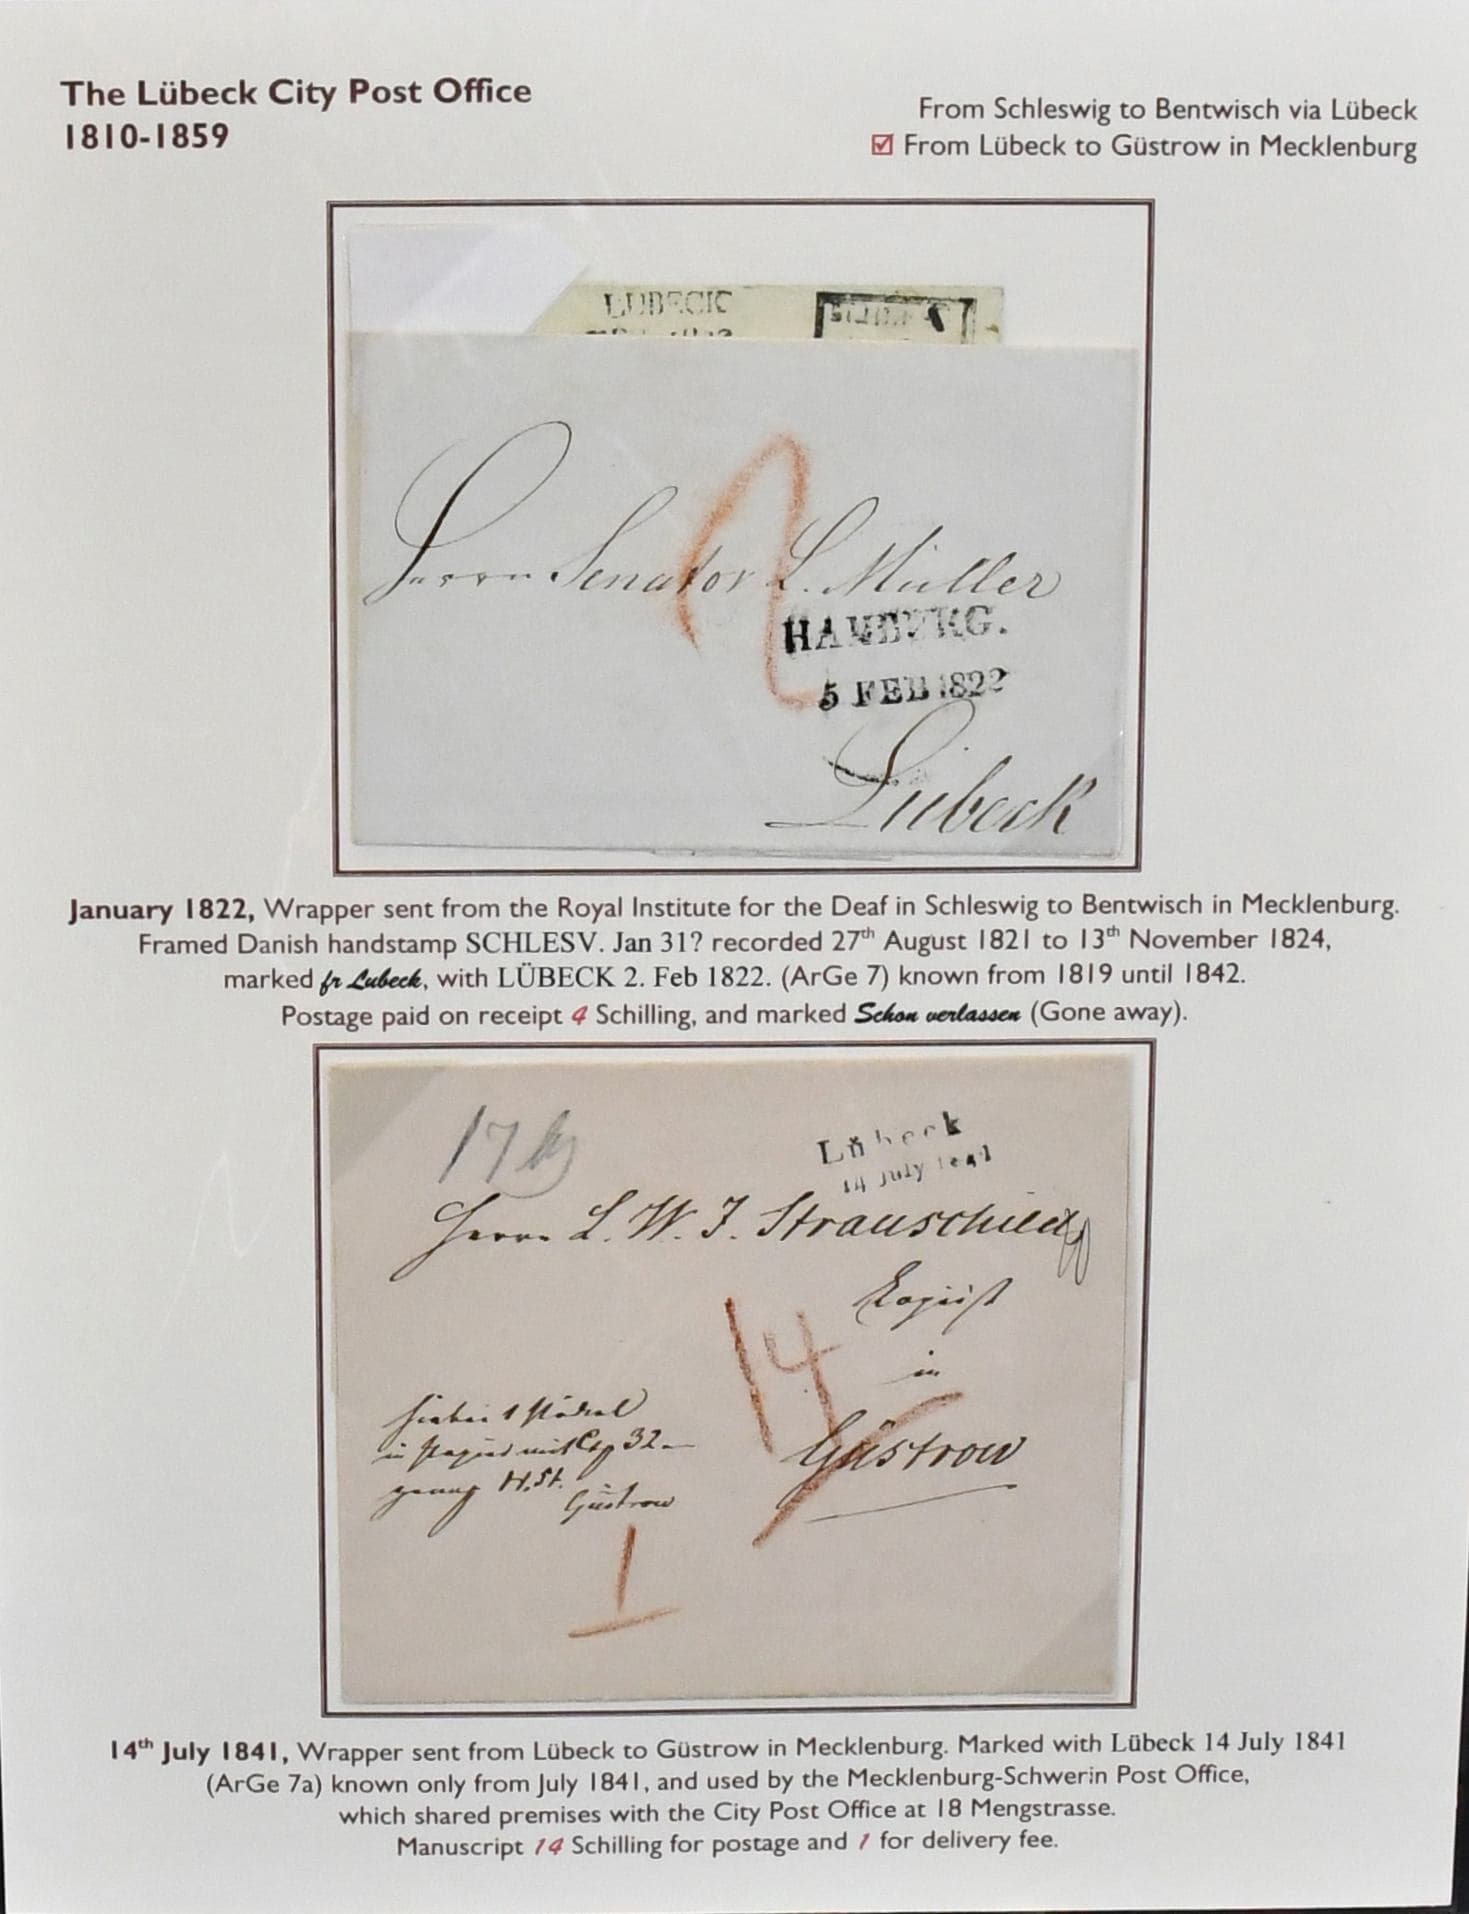 The Lübeck City Post Office
1810-1859
From Schleswig to Bentwisch via Lübeck
☑ From Lübeck to Güstrow in Mecklenburg
LÜBECK
Herrn Senator L. Müller
HAMBURG.
5 FEB 1822
Lübeck
January 1822, Wrapper sent from the Royal Institute for the Deaf in Schleswig to Bentwisch in Mecklenburg.
Framed Danish handstamp SCHLESV. Jan 31? recorded 27th August 1821 to 13th November 1824,
marked fr Lubeck, with LÜBECK 2. Feb 1822. (ArGe 7) known from 1819 until 1842.
Postage paid on receipt 4 Schilling, and marked Schon verlassen (Gone away).
17
Lübeck
14 July 1841
Herrn L. W. J.
in
14
Güstrow
32
Güstrow
1
14th July 1841, Wrapper sent from Lübeck to Güstrow in Mecklenburg. Marked with Lübeck 14 July 1841
(ArGe 7a) known only from July 1841, and used by the Mecklenburg-Schwerin Post Office,
which shared premises with the City Post Office at 18 Mengstrasse.
Manuscript 14 Schilling for postage and 1 for delivery fee.